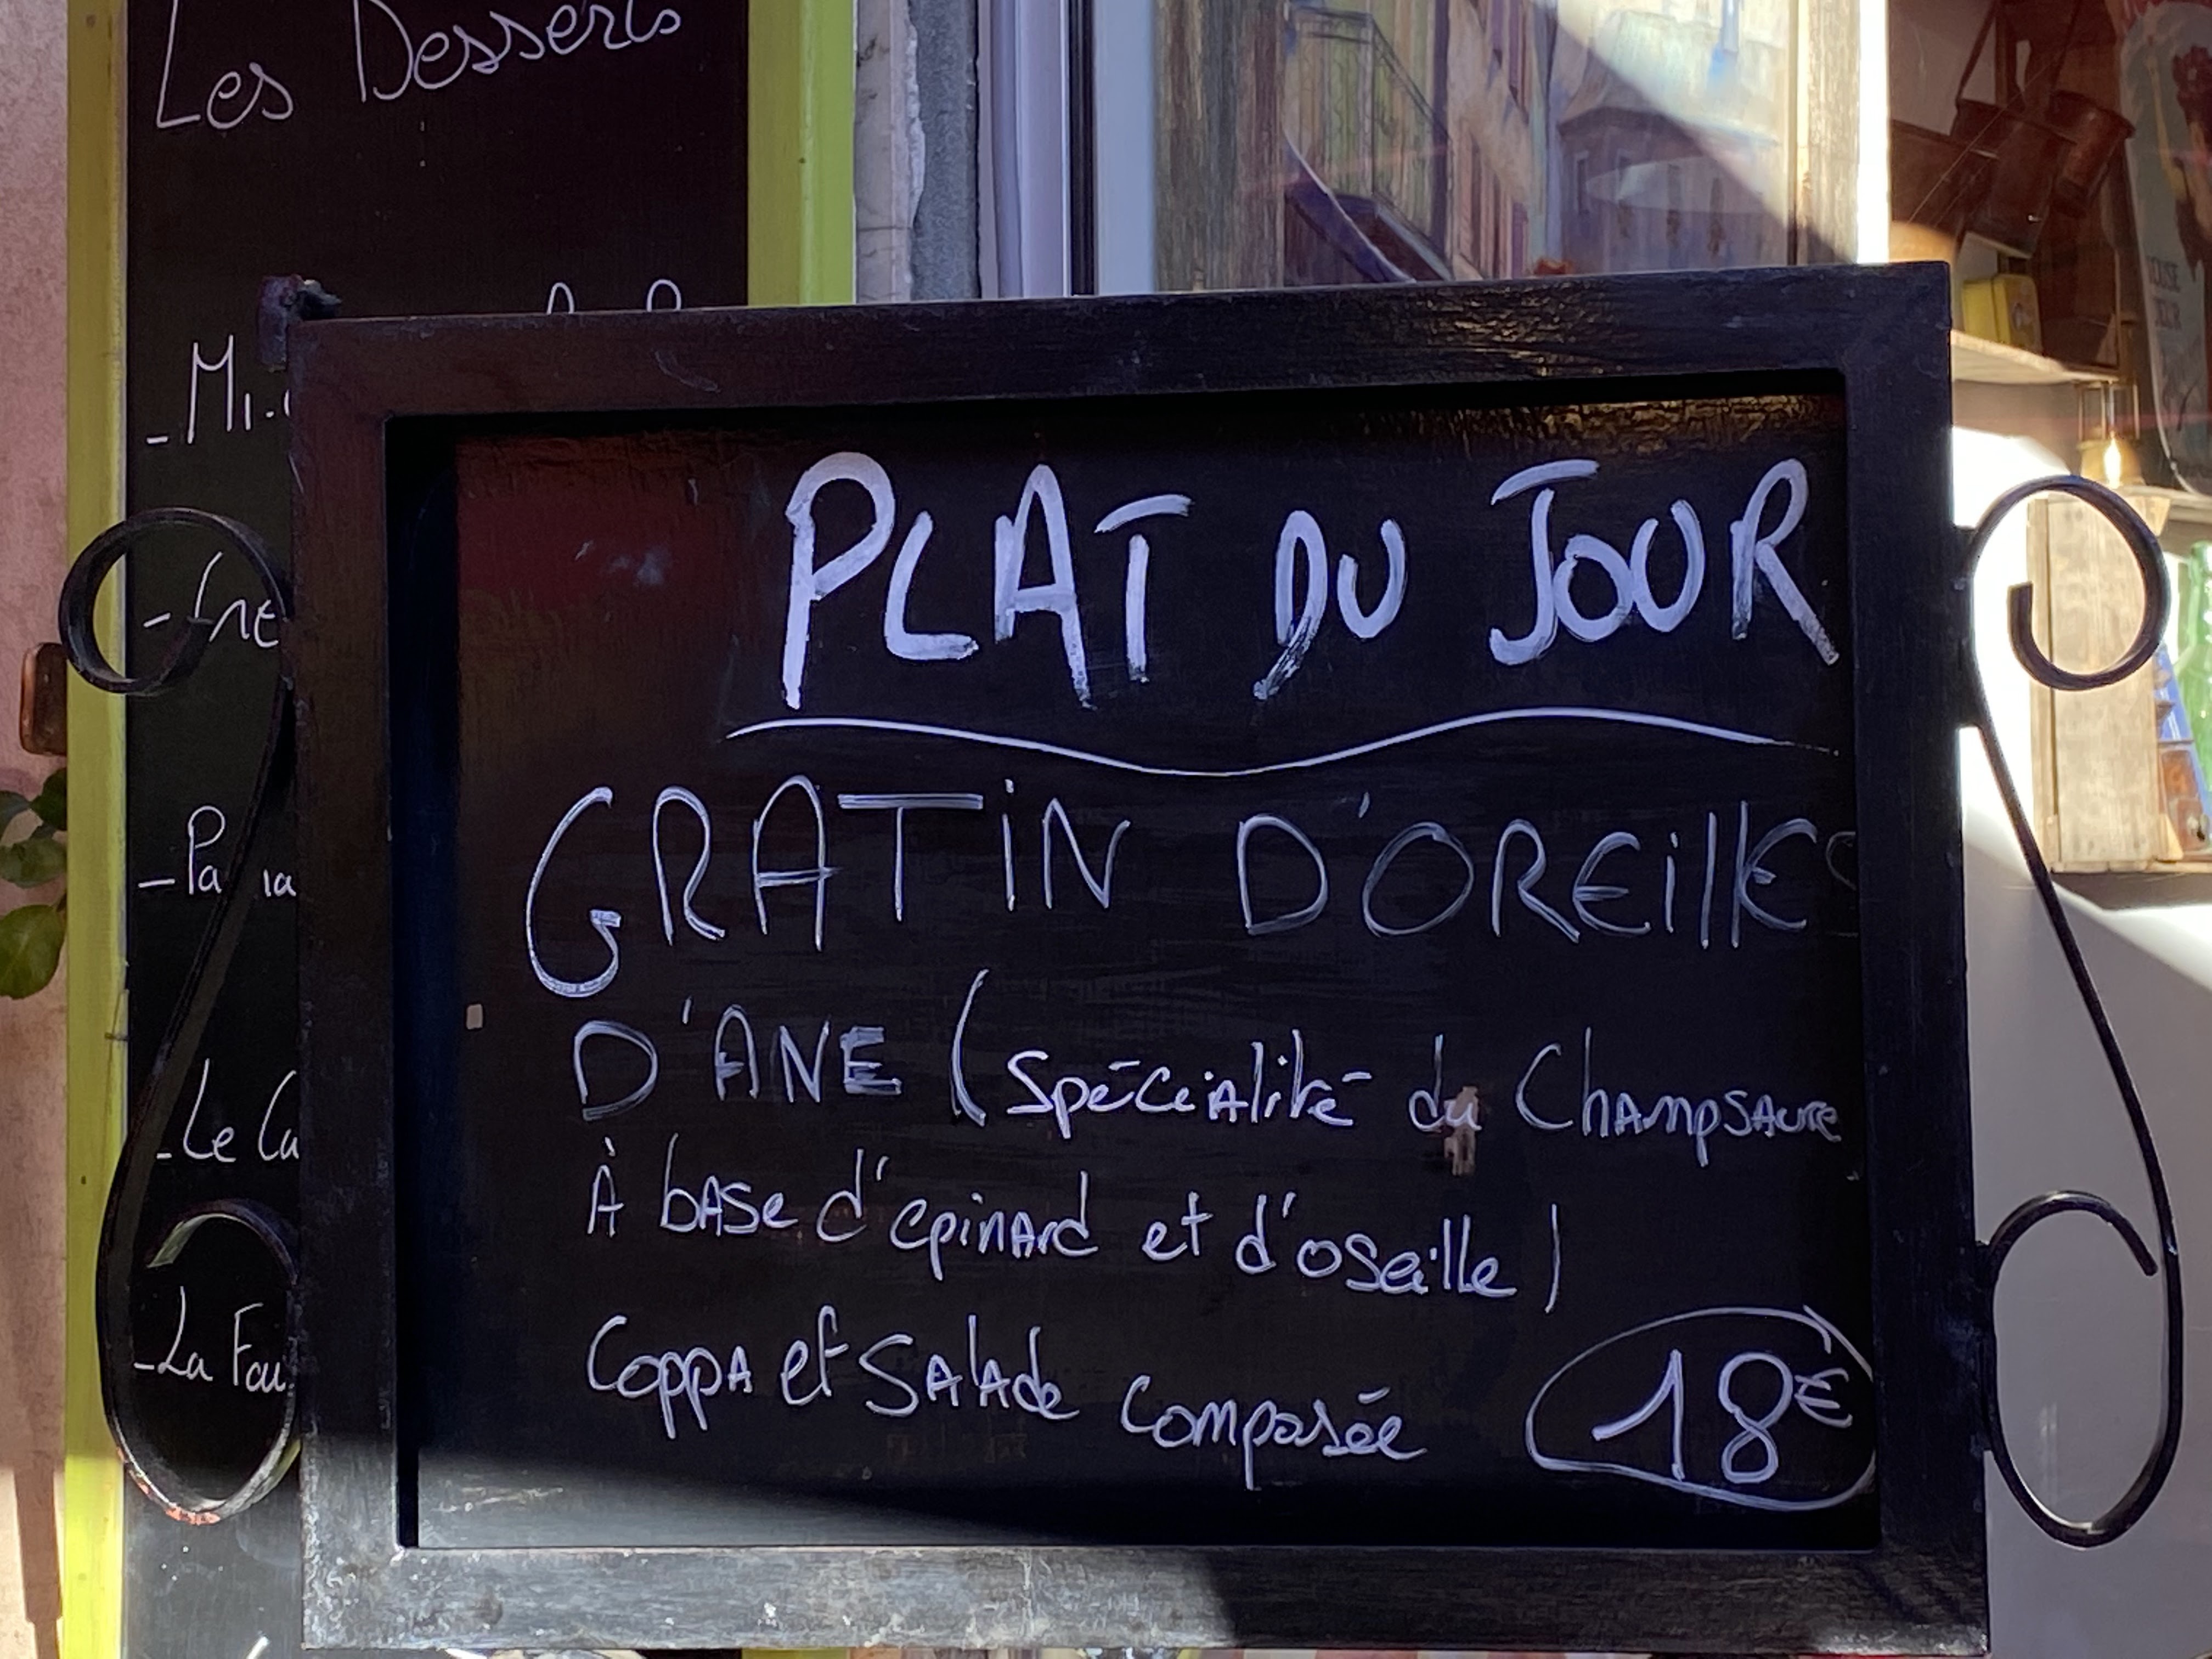 Les Desserts
PLAT DU JOUR
GRATIN D'OREILLES
D'ANE (Spécialité du Champsaure
À base d'epinard et d'oseille)
Coppa et Salade Composée
18€
- Le
- La